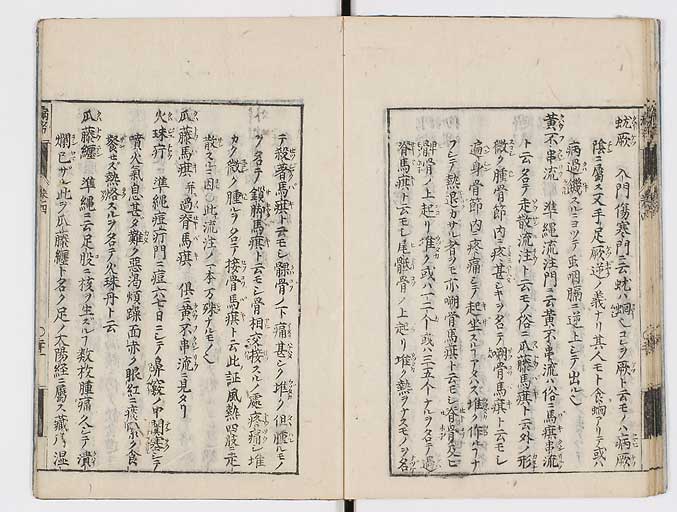 蚘厥 入門傷寒門ニ云蚘ハ蛔也コレヲ厥ト云モノハ病厥
陰ニ屬ス又手足厥逆ノ義ナリ其人モト食蛔アリテ或ハ
病過饑スルニヨツテ正咽膈ニ逆上シテ出ル也
黄不串流 準繩流注門ニ云黄不串流ハ俗ニ馬𤷍串流
ト云名テ走散流注ト云モノ俗ニ瓜藤馬𤷍ト云外ノ形
微ク腫骨節ノ内ニ疼甚シキヲ名テ嘲骨馬𤷍ト云モシ
遍身骨節ノ内ニ疼痛シテ起坐スルヿアタハス堆ク作ルヿナ
フシテ熱退カサル者ヲモ亦嘲骨馬𤷍ト云モシ脊骨ノ上
ノ上起リ堆ク或ハ一二个或ハ三五个ナルヲ名テ過
脊馬𤷍ト云モシ尾骶骨ノ上起リ堆ク熱ヲナスモノヲ名
テ殺着馬𤷍ト云モシ髁骨ノ下痛甚シク堆ク但腫ルモノ
ヲ名テ鎖脚馬𤷍ト云モシ骨相交接スルノ處疼痛シ堆
カク微ク腫ルヲ名テ接骨馬𤷍ト云此証風熱四肢ニ走
散スルニ因ル此流注ノ一本万殊ナルモノ也
瓜藤馬𤷍 并過脊馬𤷍 俱ニ黄不串流ニ見タリ
火珠疔 準繩痘疔門ニ痘六七日ニシテ鼻竅ノ中闌塞シテ
噴火氣息甚タ難ク惡渴煩躁面赤ク眼紅ニ痰喘ク食
餐セズ熱烙スルヲ名テ火珠丹ト云
瓜藤纏 準繩ニ云足股ニ核ヲ生スルヿ数枚腫痛久シテ潰
爛已サルヲ此ヲ瓜藤纏ト名ク足ノ太陽経ニ屬ス藏乃湿